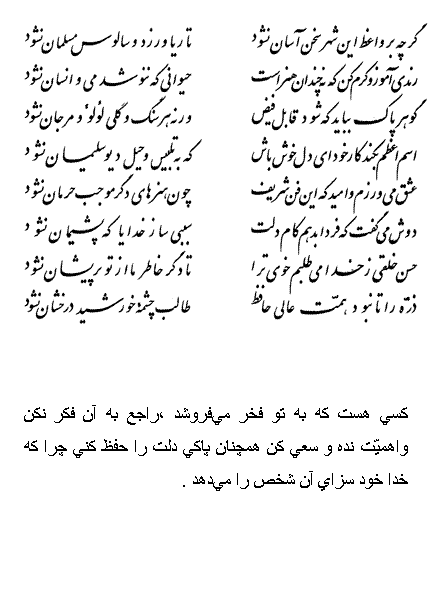 گر چه بر واعظ این شهر سخن آسان نشود تا ریا ورزد و سالوس مسلمان نشود
رندی آموز و کرم کن که نه چندان هنر است حیوانی که ننوشد می و انسان نشود
گوهر پاک بباید که شود قابل فیض ورنه هر سنگ و گلی لؤلؤ و مرجان نشود
اسم اعظم بکند کار خود ای دل خوش باش که به تلبیس و حیل دیو سلیمان نشود
عشق می ورزم و امید که این فن شریف چون هنرهای دگر موجب حرمان نشود
دوش می گفت که فردا بدهم کام دلت سببی ساز خدایا که پشیمان نشود
حسن خلقی ز خدا می طلبم خوی ترا تا دگر خاطر ما از تو پریشان نشود
ذره را تا نبود همت عالی حافظ طالب چشمه خورشید درخشان نشود
كسي هست كه به تو فخر مي‌فروشد ،راجع به آن فكر نكن
واهميّت نده و سعي كن همچنان پاكي دلت را حفظ كني چرا كه
خدا خود سزاي آن شخص را مي‌دهد .